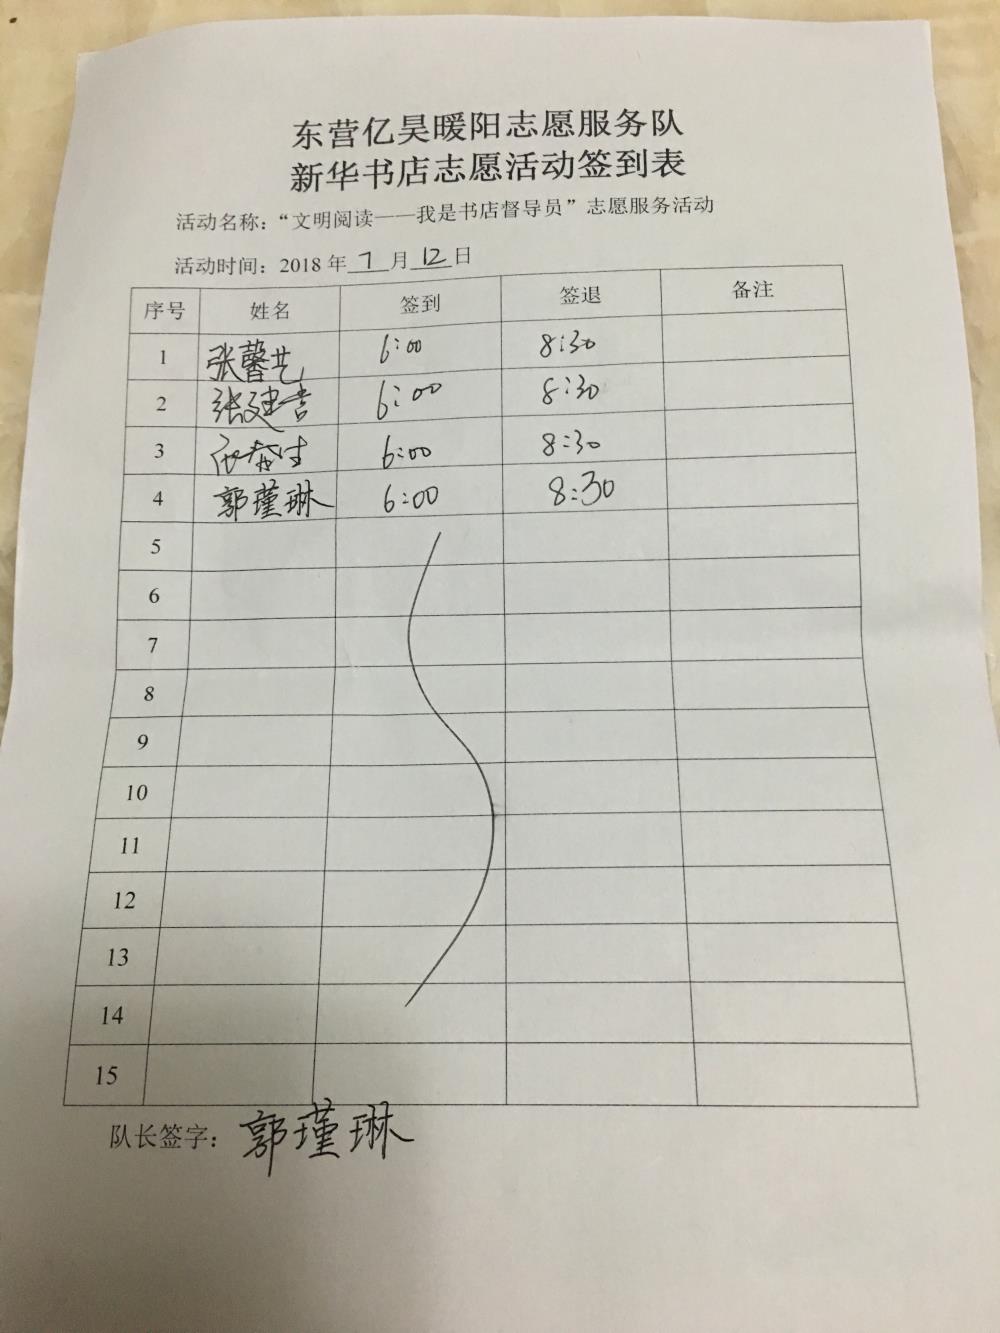 东营亿昊暖阳志愿服务队
新华书店志愿活动签到表
活动名称：“文明阅读——我是书店督导员”志愿服务活动
活动时间：2018 年 7 月 12 日
序号 姓名 签到 签退 备注
1 张馨艺 6:00 8:30
2 张建 6:00 8:30
3 6:00 8:30
4 郭瑾琳 6:00 8:30
5
6
7
8
9
10
11
12
13
14
15
队长签字：郭瑾琳